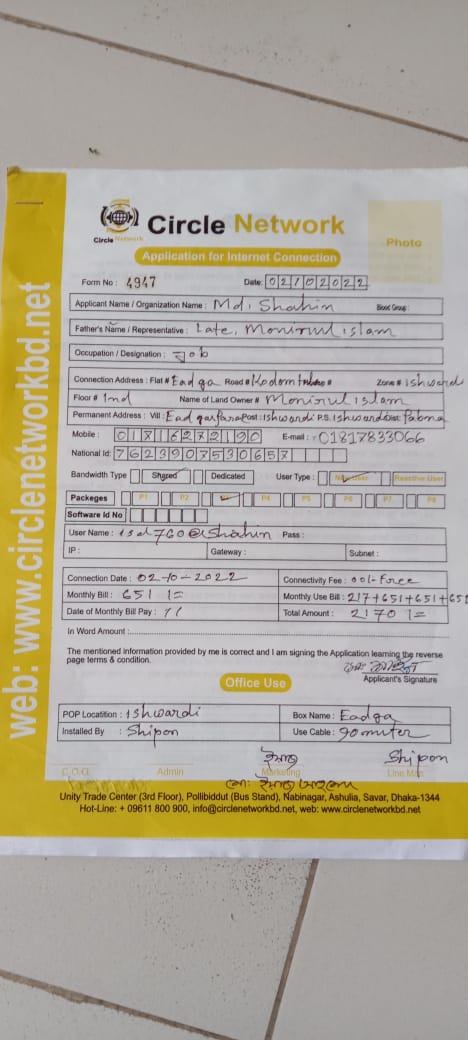 web: www.circlenetworkbd.net
Circle Network
Circle Network
Photo
Application for Internet Connection
Form No : 4947 Date: 02102022
Applicant Name / Organization Name : Md. Shahin Blood Group :
Father's Name / Representative : Late, Monirul islam
Occupation / Designation : Job
Connection Address : Flat # Eadga Road # House # Zone # ishwardi
Floor # Name of Land Owner # Monirul islam
Permanent Address : Vill : Post : Ishwardi P.S: Ishwardi Dist: Pabna
Mobile : E-mail : 01817833066
National Id: 7623907530657
Bandwidth Type Shared Dedicated User Type : New User Reactive User
Packeges P1 P2 P4 P5 P6 P7 P8
Software Id No
User Name : Pass :
IP : Gateway : Subnet :
Connection Date : 02-10-2022 Connectivity Fee : 00/- Free
Monthly Bill : 651 /= Monthly Use Bill : 217+651+651+651
Date of Monthly Bill Pay : Total Amount : 2170 /=
In Word Amount:
The mentioned information provided by me is correct and I am signing the Application learning the reverse
page terms & condition.
Applicant's Signature
Office Use
POP Locatition : Ishwardi Box Name : Eadga
Installed By : Shipon Use Cable : 90 miter
Shipon
C.O.O Admin Marketing Line Man
Unity Trade Center (3rd Floor), Pollibiddut (Bus Stand), Nabinagar, Ashulia, Savar, Dhaka-1344
Hot-Line: + 09611 800 900, info@circlenetworkbd.net, web: www.circlenetworkbd.net